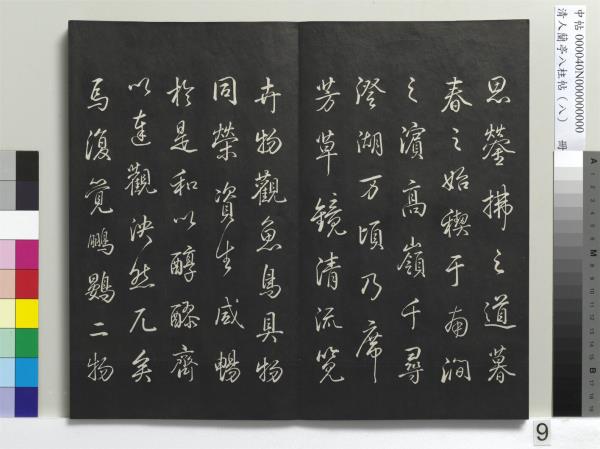 中帖 000040N000000000 冊
清人蘭亭八柱帖（八）
思瑩拂之道暮
春之始禊于南澗
之濱高嶺千尋
澄湖万頃乃席
芳草鏡清流覽
卉物觀魚鳥具物
同榮資生咸暢
於是和以醇醪齊
以達觀決然兀矣
焉復覺鵬鷃二物
9